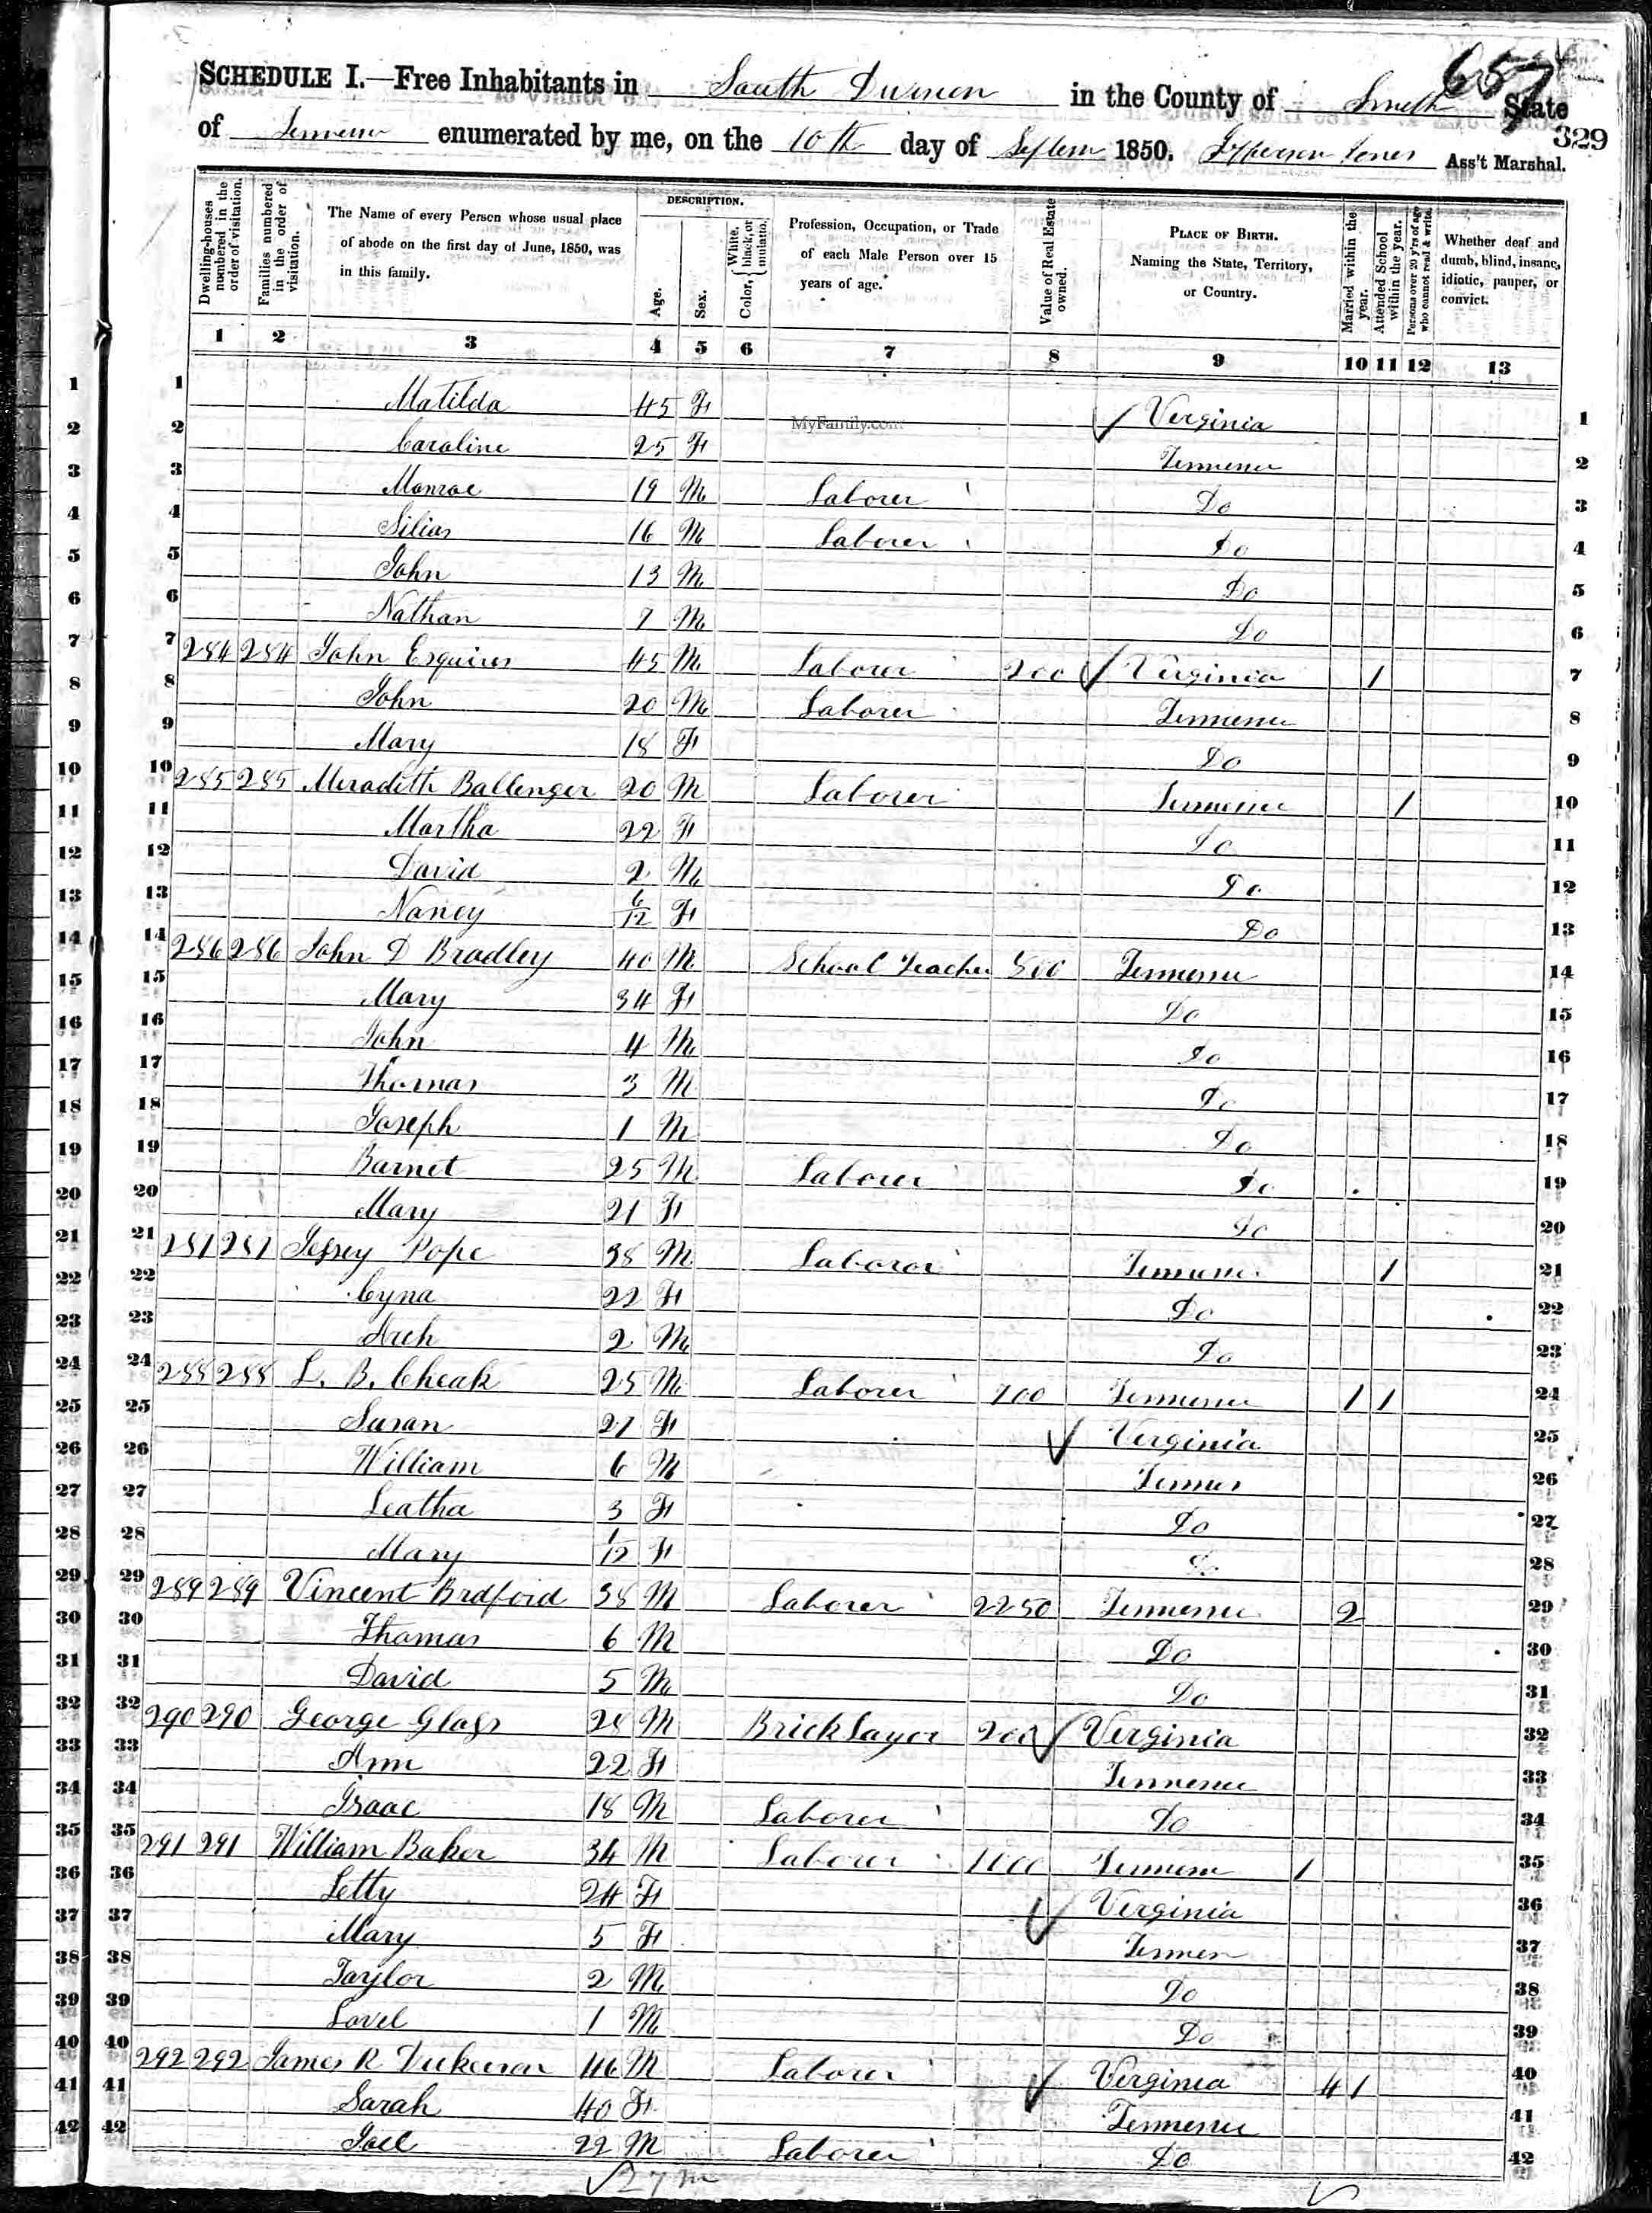 657
SCHEDULE I.—Free Inhabitants in South Division in the County of Smith State
of Tennessee enumerated by me, on the 10th day of Septem 1850. Jefferson Jones Ass't Marshal.
329
Dwelling-houses numbered in the order of visitation.
Families numbered in the order of visitation.
The Name of every Person whose usual place of abode on the first day of June, 1850, was in this family.
DESCRIPTION.
Age.
Sex.
Color, { White, black, or mulatto.
Profession, Occupation, or Trade of each Male Person over 15 years of age.
Value of Real Estate owned.
PLACE OF BIRTH. Naming the State, Territory, or Country.
Married within the year.
Attended School within the year.
Persons over 20 y'rs of age who cannot read & write.
Whether deaf and dumb, blind, insane, idiotic, pauper, or convict.
1 2 3 4 5 6 7 8 9 10 11 12 13
1 1 Matilda 45 F Virginia 1
MyFamily.com
2 2 Caroline 25 F Tennessee 2
3 3 Monroe 19 M Laborer Do 3
4 4 Silias 16 M Laborer Do 4
5 5 John 13 M Do 5
6 6 Nathan 7 M Do 6
7 7 284 284 John Esquires 45 M Laborer 200 Virginia 1 7
8 8 John 20 M Laborer Tennessee 8
9 9 Mary 18 F Do 9
10 10 285 285 Meradith Ballenger 20 M Laborer Tennessee 1 10
11 11 Martha 22 F Do 11
12 12 David 2 M Do 12
13 13 Nancy 6/12 F Do 13
14 14 286 286 John D Bradley 40 M School Teacher 500 Tennessee 14
15 15 Mary 34 F Do 15
16 16 John 4 M Do 16
17 17 Thomas 3 M Do 17
18 18 Joseph 1 M Do 18
19 19 Barnet 25 M Laborer Do 19
20 20 Mary 21 F Do 20
21 21 287 287 Jefsey Pope 38 M Laborer Tennessee 1 21
22 22 Cyna 22 F Do 22
23 23 Arch 2 M Do 23
24 24 288 288 L. B. Cheak 25 M Laborer 700 Tennessee 1 1 24
25 25 Susan 27 F Virginia 25
26 26 William 6 M Tennes 26
27 27 Leatha 3 F Do 27
28 28 Mary 1/12 F Do 28
29 29 289 289 Vincent Bradford 38 M Laborer 2250 Tennessee 2 29
30 30 Thomas 6 M Do 30
31 31 David 5 M Do 31
32 32 290 290 George Glass 28 M Brick Layor 200 Virginia 32
33 33 Ann 22 F Tennessee 33
34 34 Isaac 18 M Laborer Do 34
35 35 291 291 William Baker 34 M Laborer 1000 Tennessee 1 35
36 36 Letty 24 F Virginia 36
37 37 Mary 5 F Tennes 37
38 38 Taylor 2 M Do 38
39 39 Lovel 1 M Do 39
40 40 292 292 James R Dickerson 46 M Laborer Virginia 4 1 40
41 41 Sarah 40 F Tennessee 41
42 42 Joel 22 M Laborer Do 42
27 m